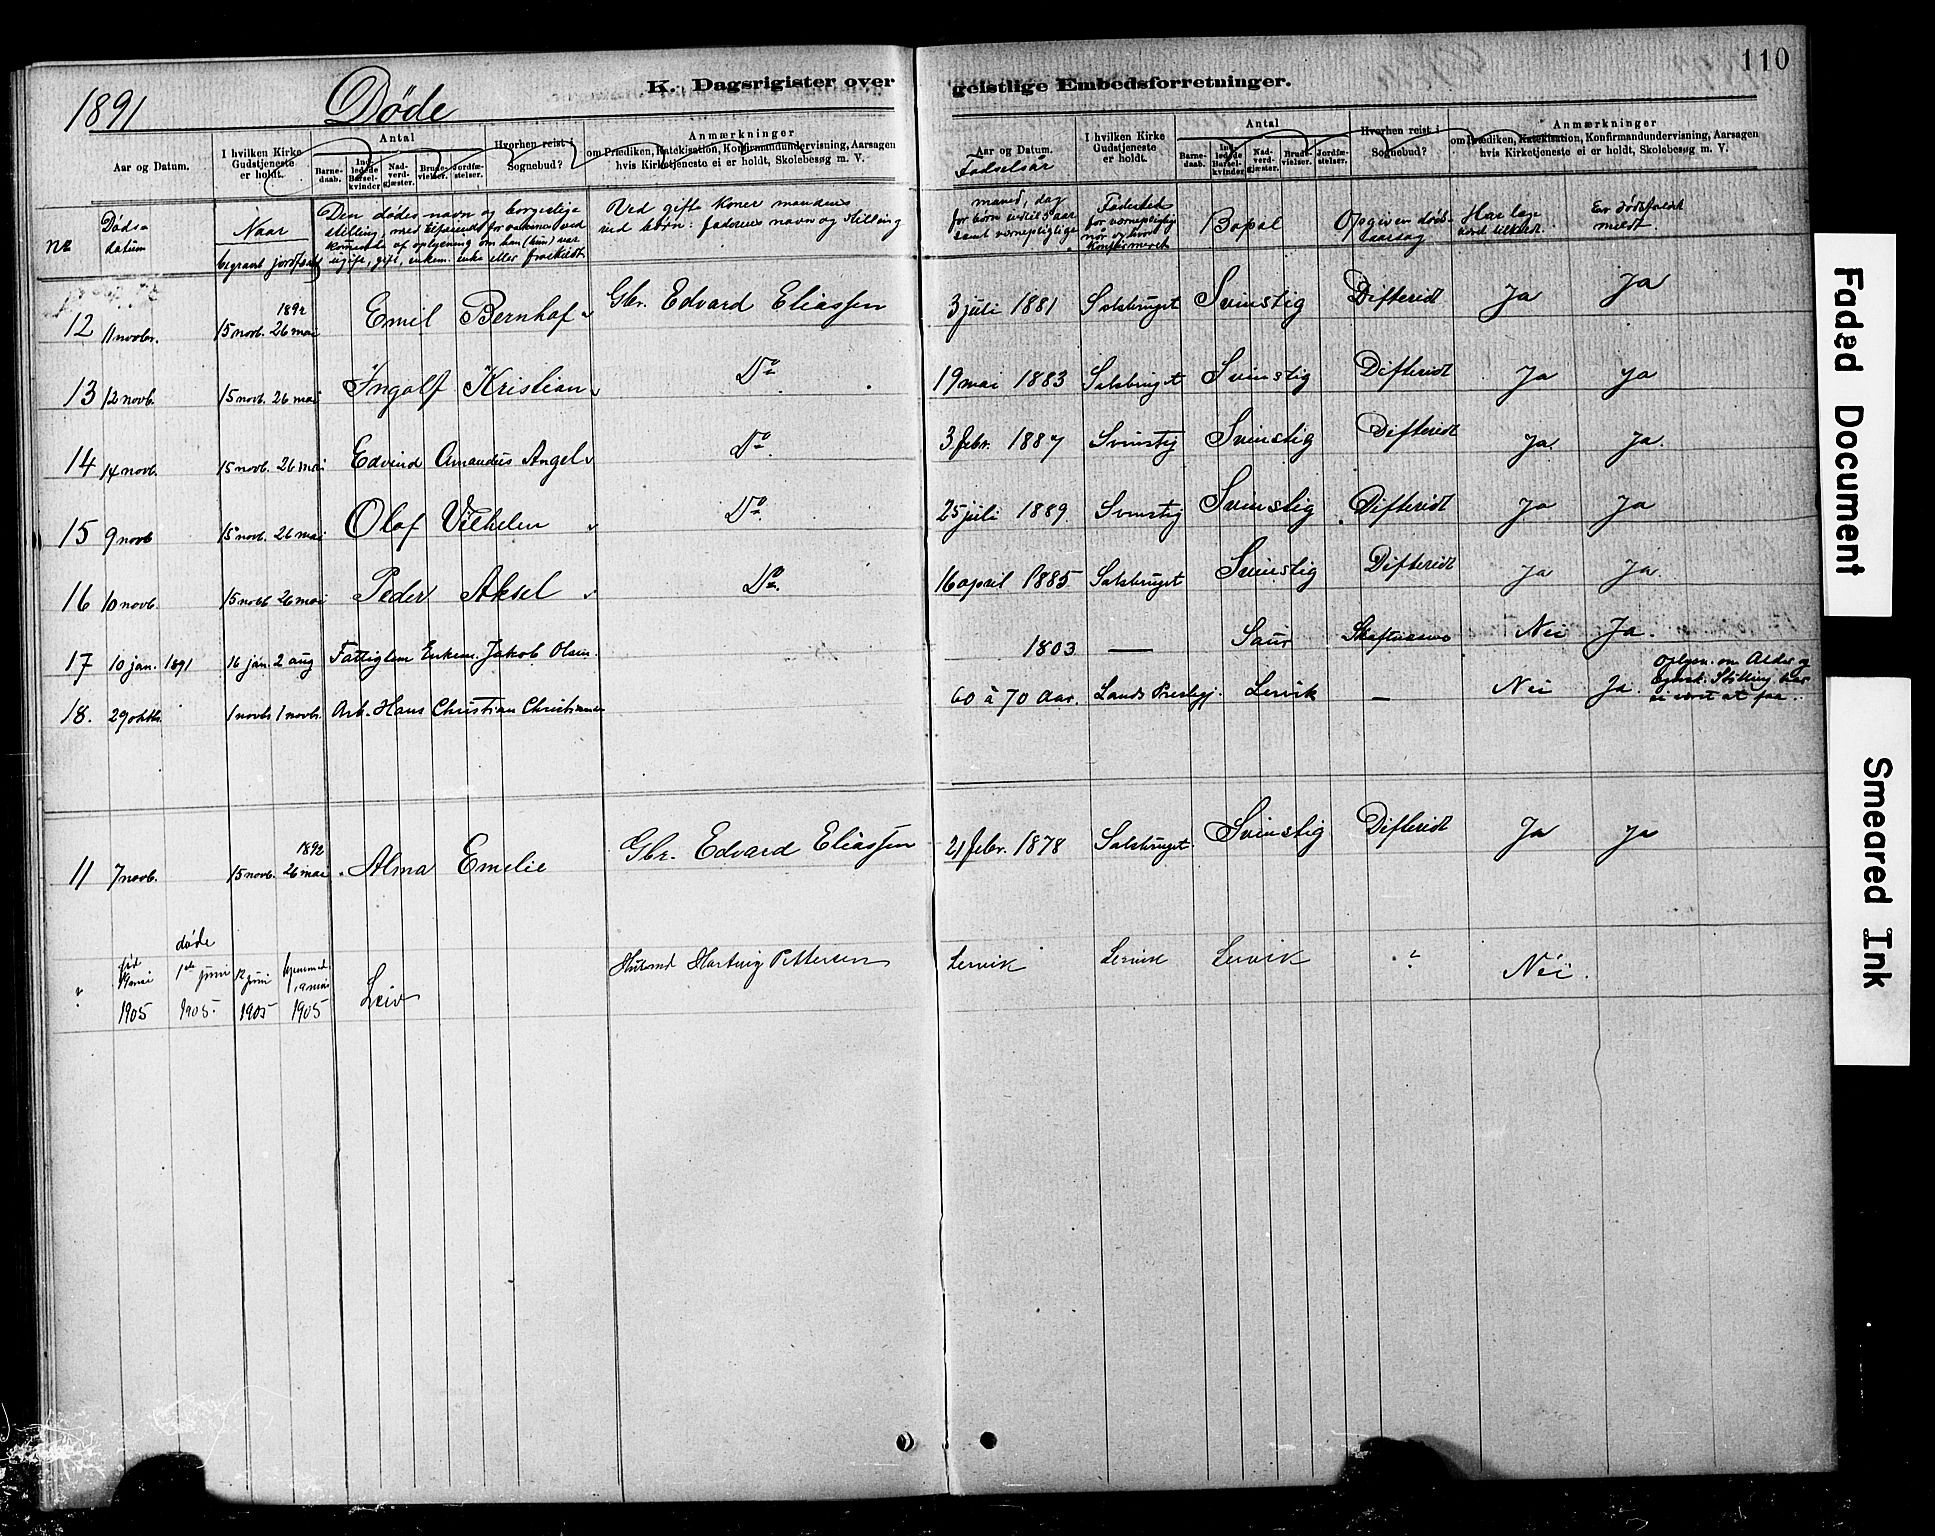 110
1891
Døde
K. Dagsrigister over geistlige Embedsforretninger.
Aar og Datum.
I hvilken Kirke Gudstjeneste er holdt.
Antal
Barnedaab.
Indledede Barselkvinder
Nadverdgjæster.
Brudevielser.
Jordfæstelser.
Hvorhen reist i Sognebud?
Anmærkninger
om Prædiken, Katekisation, Konfirmandundervisning, Aarsagen
hvis Kirketjeneste ei er holdt, Skolebesøg m. V.
Aar og Datum.
I hvilken Kirke Gudstjeneste er holdt.
Antal
Barnedaab.
Indledede Barselkvinder
Nadverdgjæster.
Brudevielser.
Jordfæstelser.
Hvorhen reist i Sognebud?
Anmærkninger
om Prædiken, Katekisation, Konfirmandundervisning, Aarsagen
hvis Kirketjeneste ei er holdt, Skolebesøg m. V.
No
Døds datum
Naar
begravet jordfæstet
Den dødes navn og borgerlige
stilling, med tilføiende for voksne ved
kommende af oplysning om han (hun) var
ugift, gift, enkem. enke eller fraskilt
Ved gifte koner mandens
ved børn: faderens navn og stilling
Fødselsår
maned, dag
for børn indtil 5 aar
samt vernepligtige
Fødested
for vernepligtig
når og hvor
konfirmeret
Bopal
Opgiven døds-
aarsag
Har læge
været tilkaldt.
Er dødsfaldet
meldt.
12 11 novbr. 15 novb. 1892 26 mai Emil Bernhof Gbr. Edvard Eliassen 3 juli 1881 Salsbruget Svinstig Difteridt Ja Ja
13 12 novb. 15 novb. 26 mai Ingolf Kristian Do 19 mai 1883 Salsbruget Svinstig Difteridt Ja Ja
14 14 novb. 15 novb. 26 mai Edvind Amandus Angel Do. 3 febr. 1887 Svinstig Svinstig Difteridt Ja. Ja.
15 9 novb 15 novb. 26 mai Olaf Vilhelm Do. 25 juli 1889. Svinstig Svinstig Difteridt Ja Ja
16 10 novb. 15 novb. 26 mai Peder Aksel Do. 16 april 1885 Salsbruget Svinstig Difteridt Ja Ja.
17 10 jan. 1891 16 jan. 2 aug Fattiglem Enkem. Jakob Olsen. 1803 — Saur Nei Ja.
18. 29 oktb. 1 novbr 1 novbr. Arb. Hans Christian Christiansen 60 à 70 Aar. Lands Prestegj. Lervik — Nei Ja. Oplysn. om Alder og Egensk. Stilling har ei været at faa.
11 7 novb. 15 novb. 1892 26 mai Alma Emelie Gbr. Edvard Eliassen 21 febr. 1878 Salsbruget. Svinstig Difteridt Ja Ja
" fød mai 1905 døde 1ste juni 1905. 12 juni 1905 hjemmed. mai 1905 Leiv Husmd Hartvig Pettersen Lervik Lervik Lervik ? Nei.
Faded Document
Smeared Ink